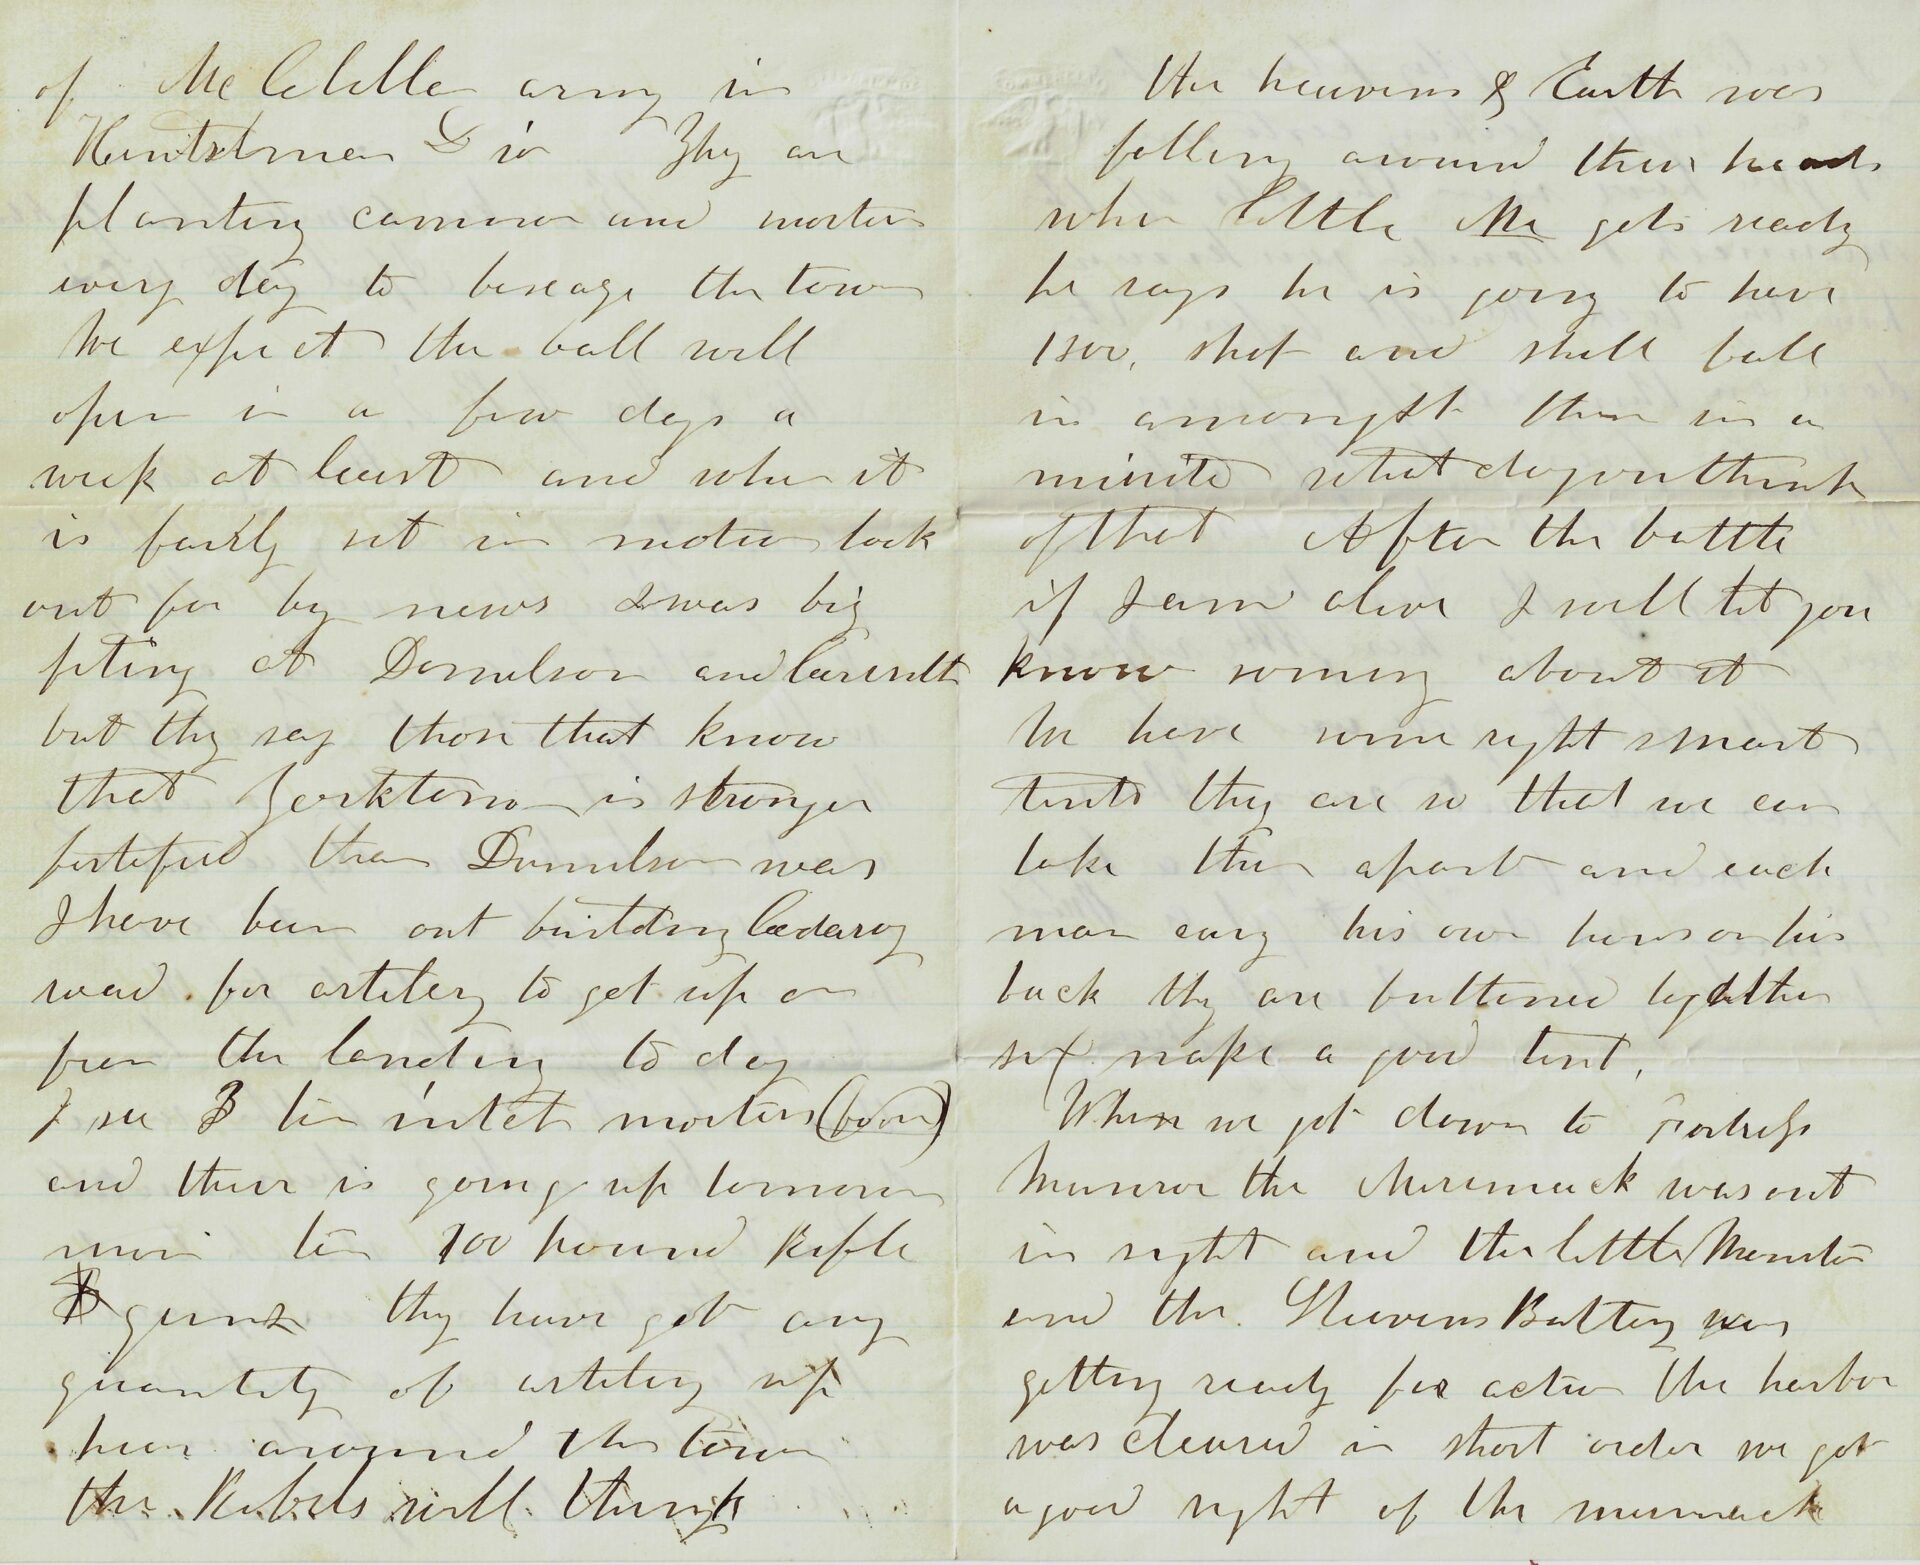 of Mc Clellan army in
Huntstman Div They are
planting cannon and morters
every day to beseage the town
We expect the ball will
open in a few days a
week at least and when it
is fairly set in motion look
out for by news was big
fiting at Donnelson and
but they say those that know
that Yorktown is stronger
fortified than Donnelson was
I have been out building Cordaroy
road for artilery to get up on
from the landing to day
I see 3 ten intch morters (boom)
and there is going up tomorrow
morn ten 100 pound Rifle
guns they have got any
quantity of artilery up
hear around the town
the Rebels will think
the heavens & Earth was
falling around their heads
when little Mc gets ready
he says he is going to have
1500, shot and shell fall
in amongst them in a
minite what do you think
of that After the battle
if I am alive I will let you
know sommg about it
We have some right smart
tents they are so that we can
take them apart and each
man cary his own hous on his
back thy are buttened together
six make a good tent,
When we got down to Fortress
Munroe the Merrimack was out
in sight and the little Moniter
and the Steevens Battery was
getting ready for action the harbor
was cleared in short order we got
a good sight of the merrmack